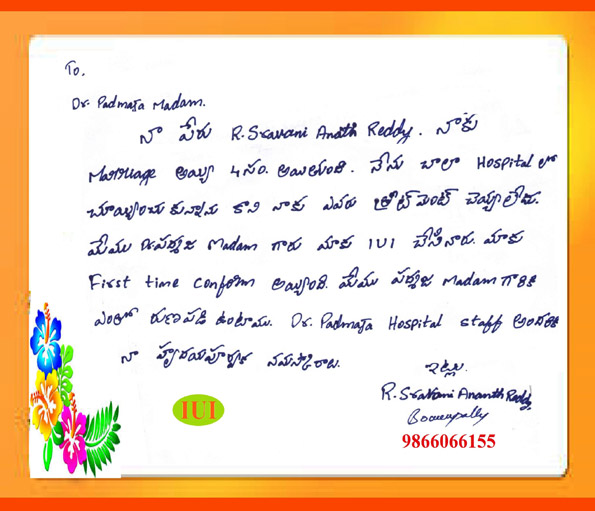 To,
Dr. Padmaja Madam.
నా పేరు R. Sravani Ananth Reddy. నాకు
Marriage అయ్యి 4 సం. అయ్యింది. నేను చాలా Hospital లో
చూయ్యించుకున్నాను కాని నాకు ఎవరు ట్రీట్‌మెంట్ చెయ్యలేదు.
మేము Dr పద్మజ Madam గారు మాకు IUI చేసినారు. మాకు
First time confirm అయ్యింది. మేము పద్మజ Madam గారికి
ఎంతో రుణపడి ఉంటాము. Dr. Padmaja Hospital staff అందరికి
నా హృదయపూర్వక నమస్కారాలు.
ఇట్లు.
R. Sravani Ananth Reddy
Bowenpally
IUI
9866066155